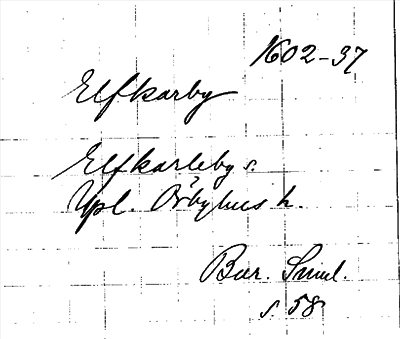 1602-37
Elfkarby
Elfkarleby s.
Upl. Örbyhus h.
Bur. Sml.
s. 58